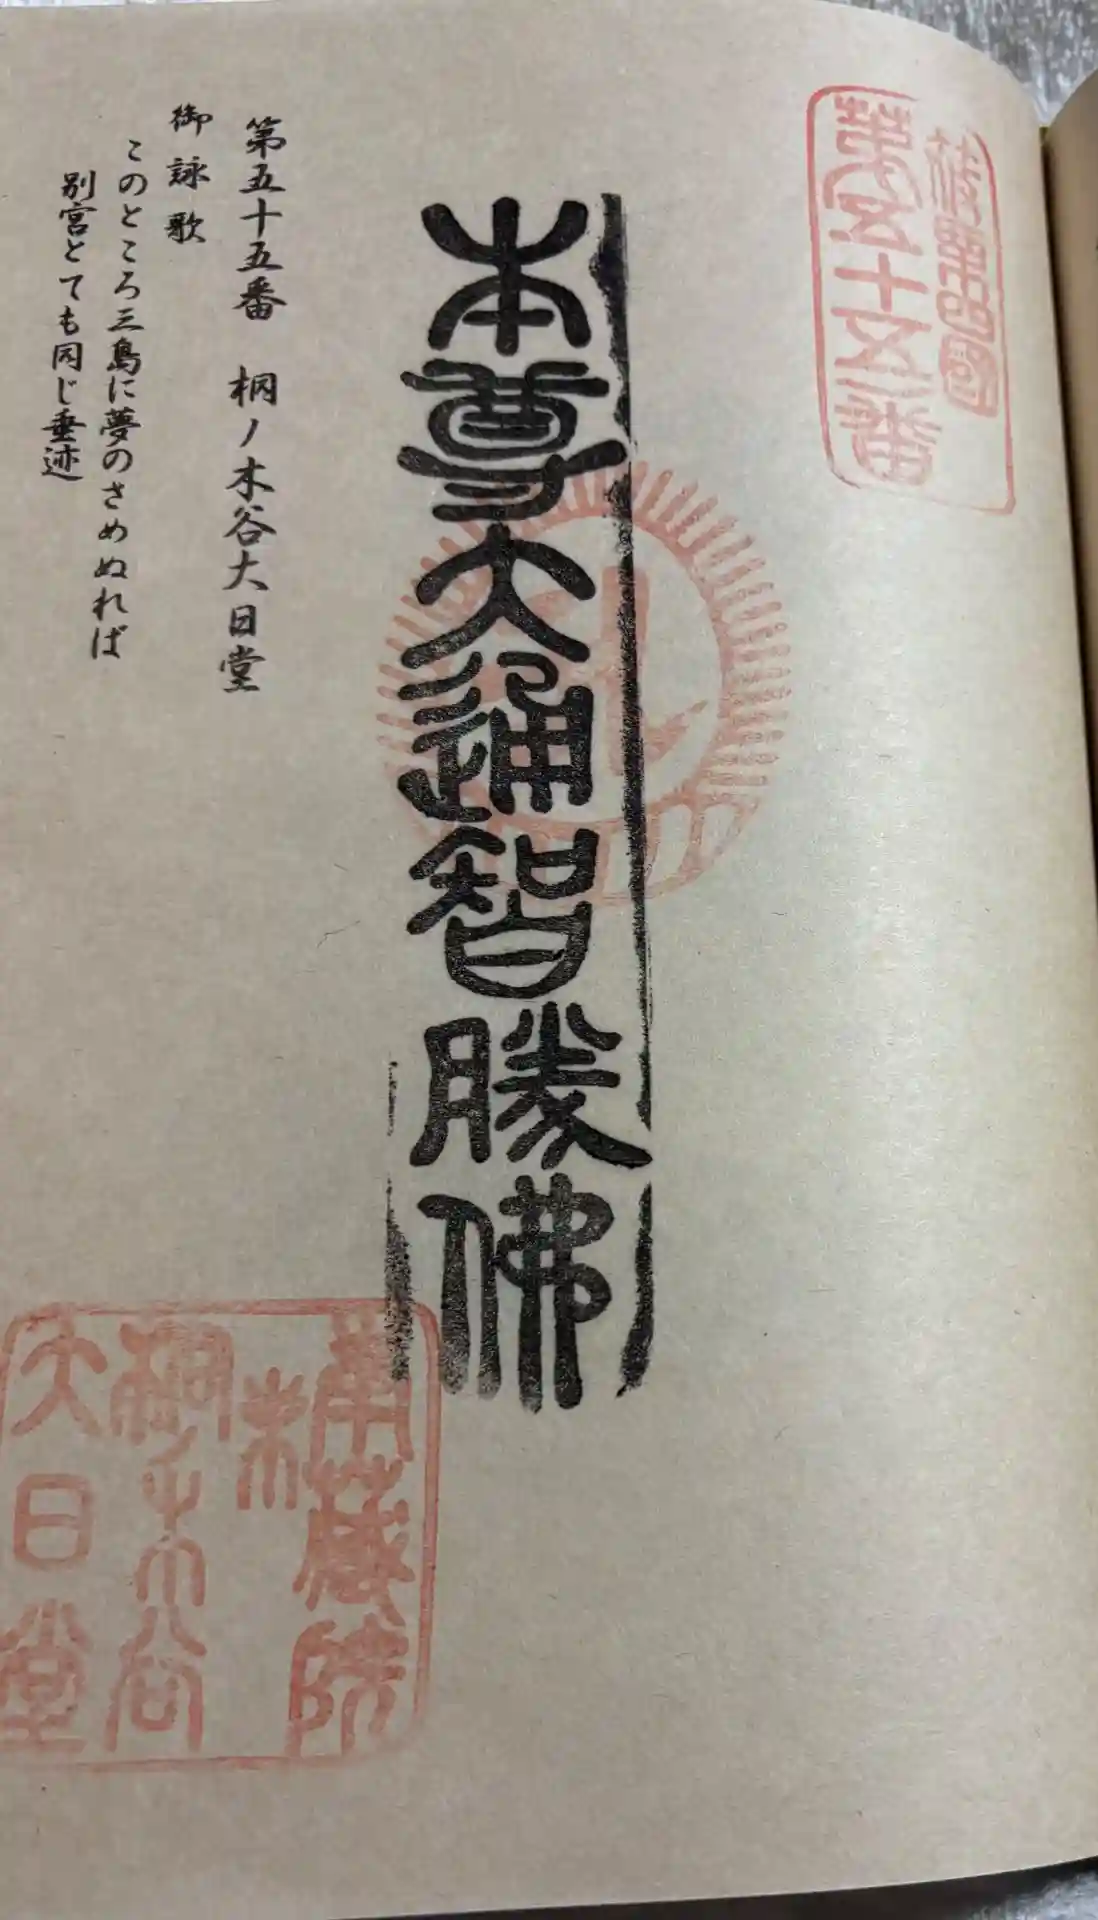 篠栗四國
第五十五番
本尊大通智勝佛
第五十五番 桐ノ木谷大日堂
御詠歌
このところ三島に夢のさめぬれば
別宮とても同じ垂迹
南蔵院
桐ノ木谷
大日堂